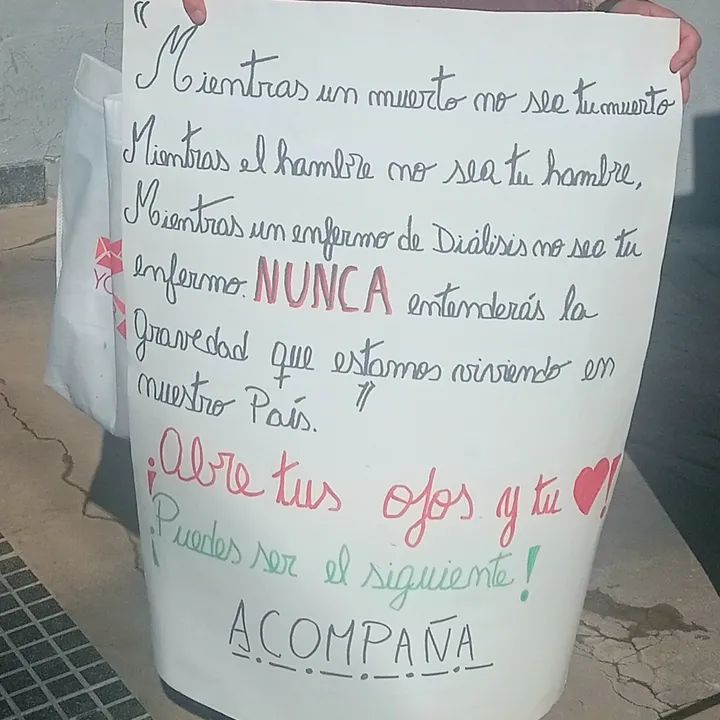 "Mientras un muerto no sea tu muerto
Mientras el hambre no sea tu hambre,
Mientras un enfermo de Diálisis no sea tu
enfermo. NUNCA entenderás la
gravedad que estamos viviendo en
nuestro País."
¡Abre tus ojos y tu ❤!
¡Puedes ser el siguiente!
ACOMPAÑA